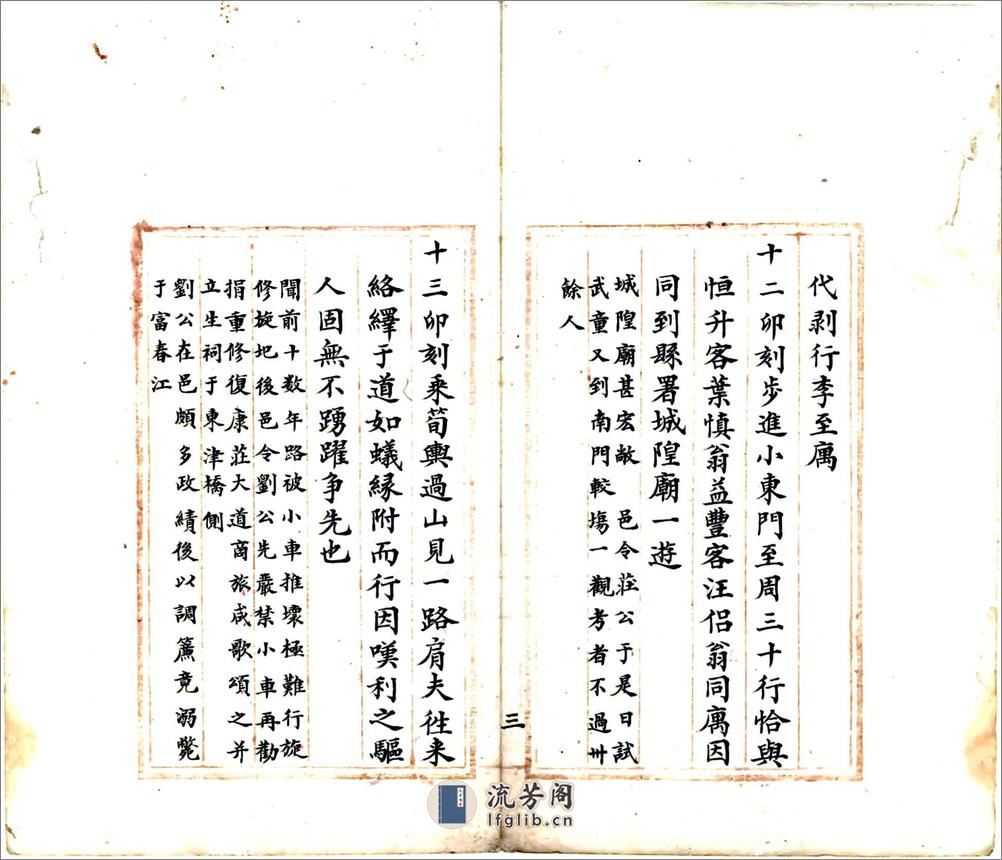 代剥行李至寓
十二卯刻步進小東門至周三十行恰與
恒升客葉慎翁益豐客汪侣翁同寓因
同到縣署城隍廟一遊
城隍廟甚宏敞邑令莊公于是日試
武童又到南門較塲一觀考者不過卅
餘人
三
十三卯刻乘筍輿過山見一路肩夫往来
絡繹于道如蟻緣附而行因嘆利之驅
人固無不踴躍争先也
聞前十数年路被小車推壞極難行旋
修旋圮後邑令劉公先嚴禁小車再勸
捐重修復康莊大道商旅咸歌頌之并
立生祠于東津橋側
劉公在邑頗多政績後以調簾竟溺斃
于富春江
流芳阁
lfglib.cn